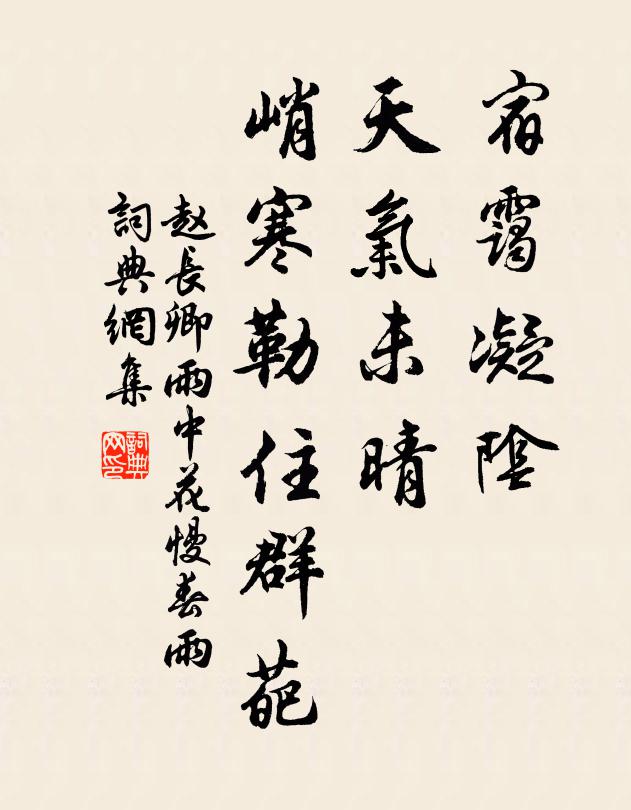 宿霭凝陰
天氣未晴
峭寒勒住群葩
赵長卿雨中花慢春雨
詞典網集
詞典网印